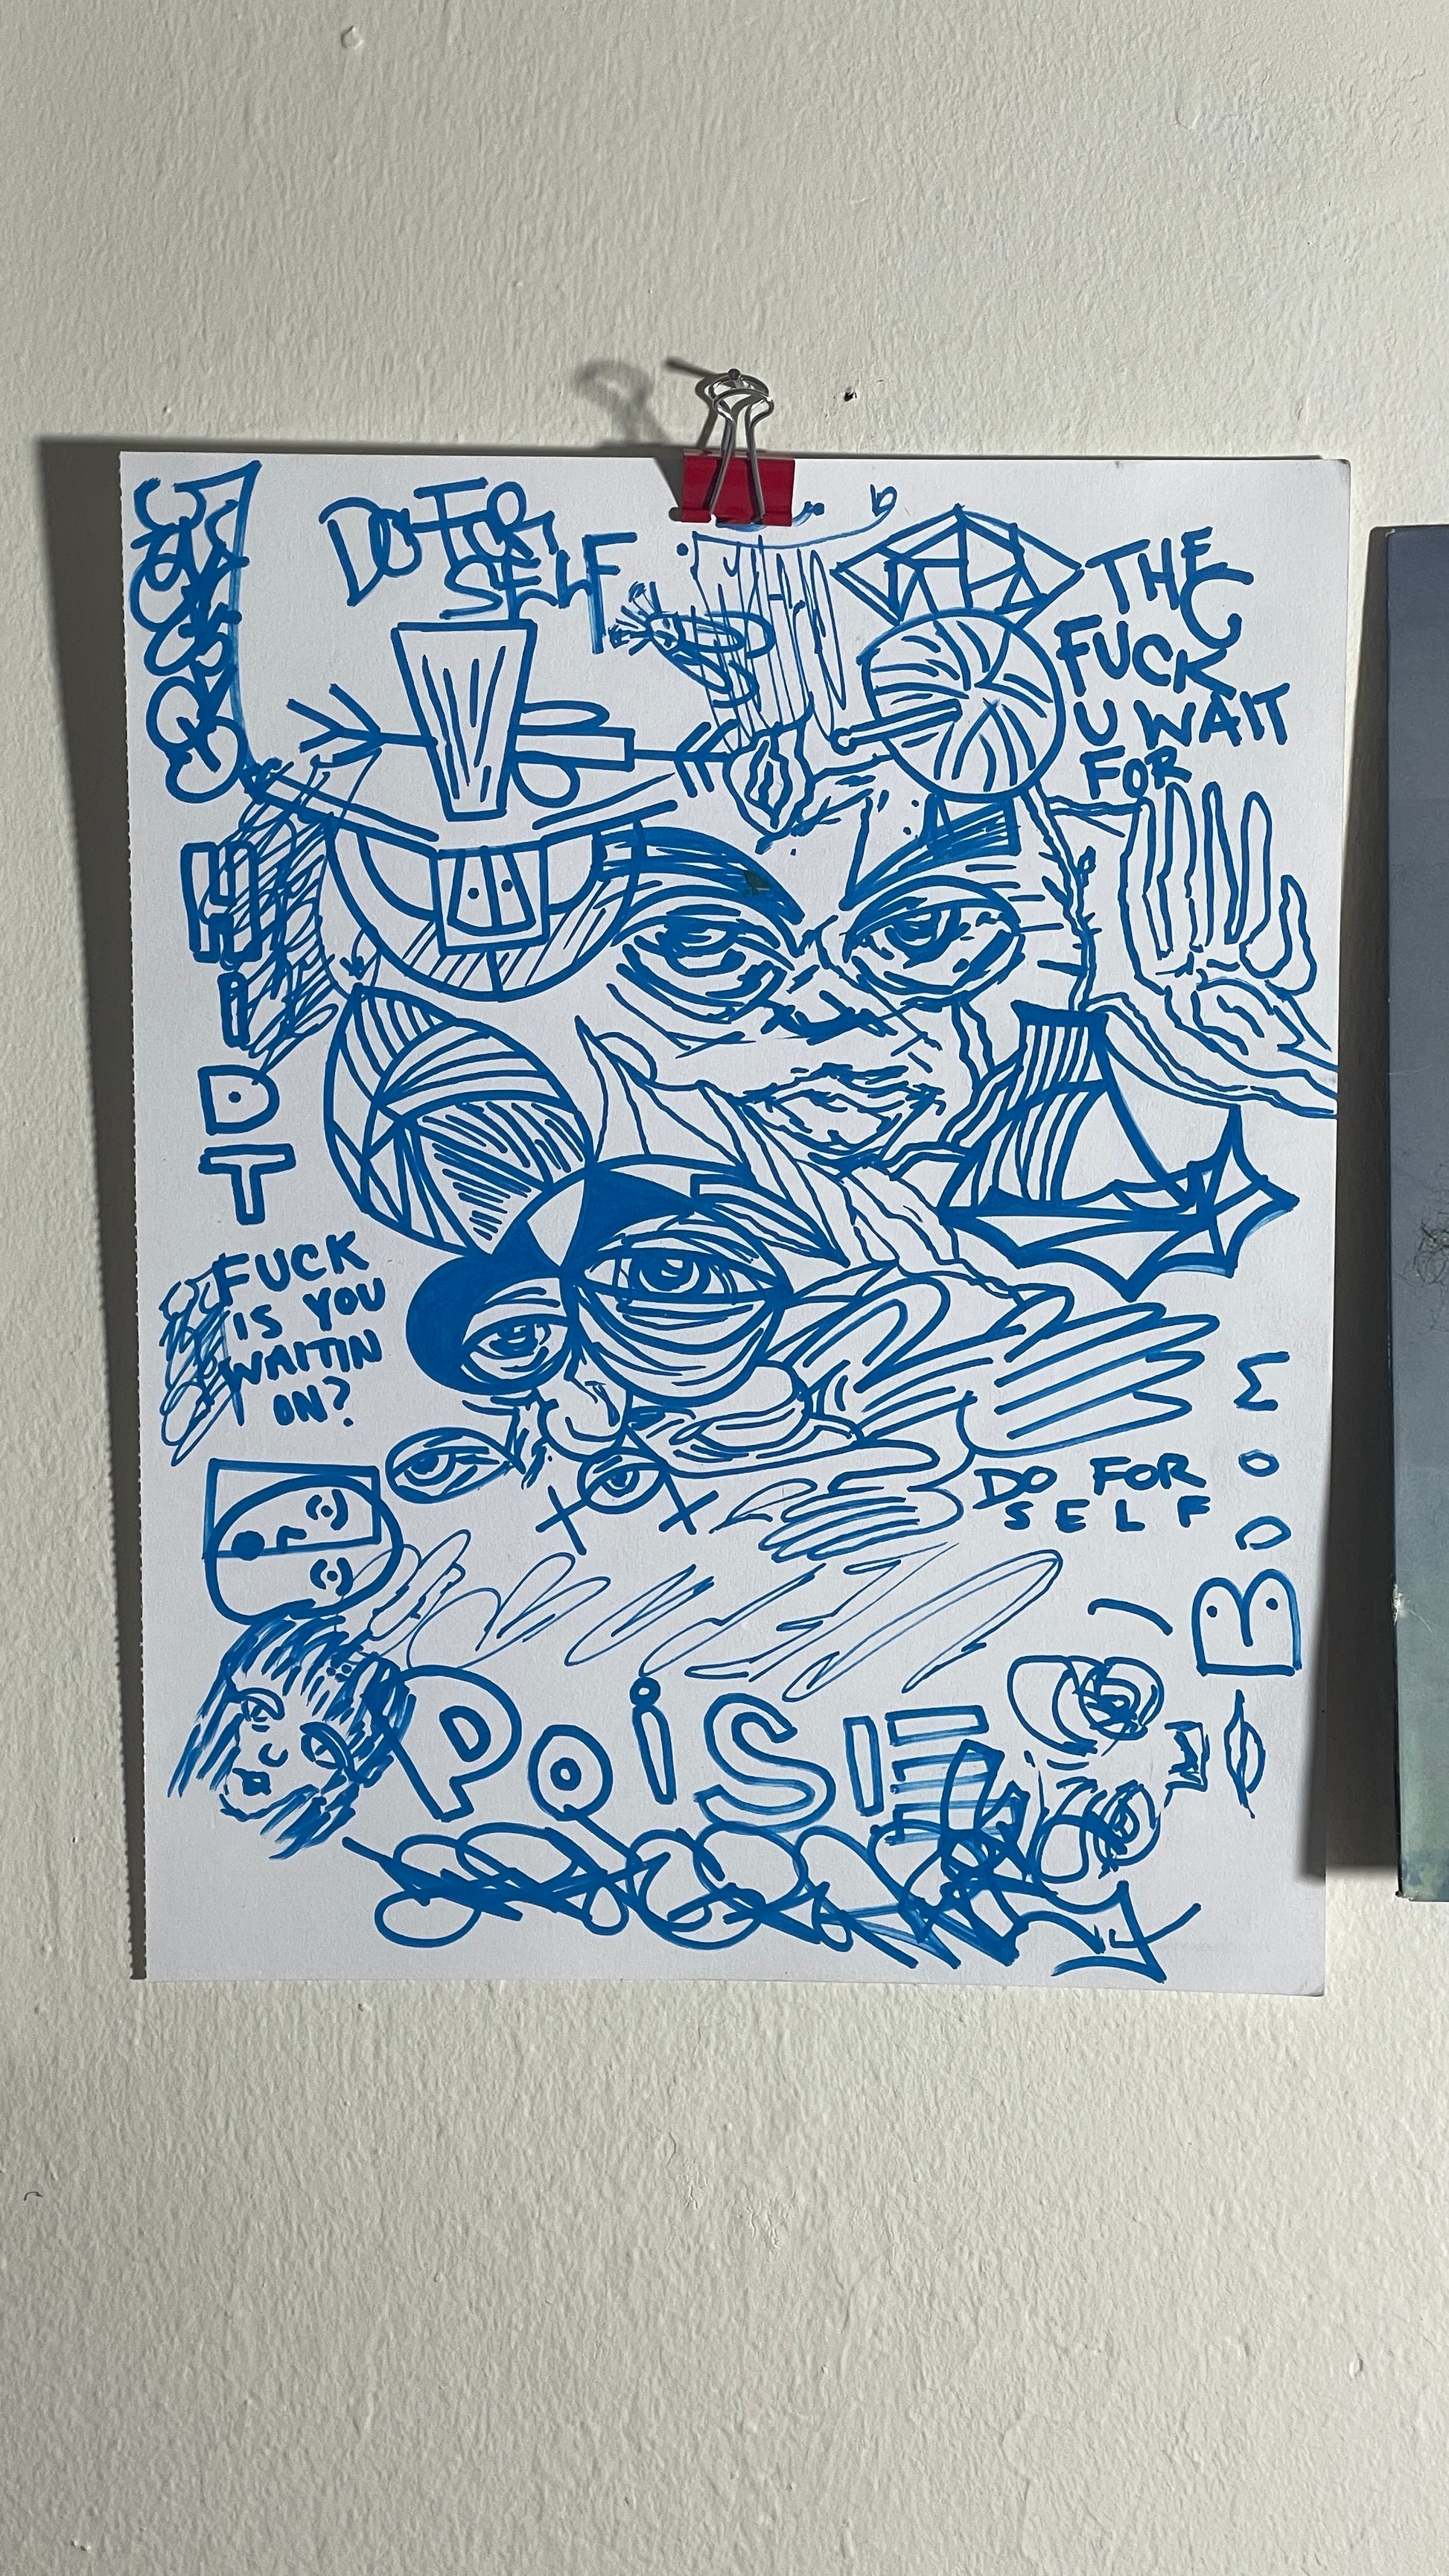 DO FOR
SELF
THE
FUCK
U WAIT
FOR
FUCK
IS YOU
WAITIN
ON?
DO FOR
SELF
BOOM
POISE